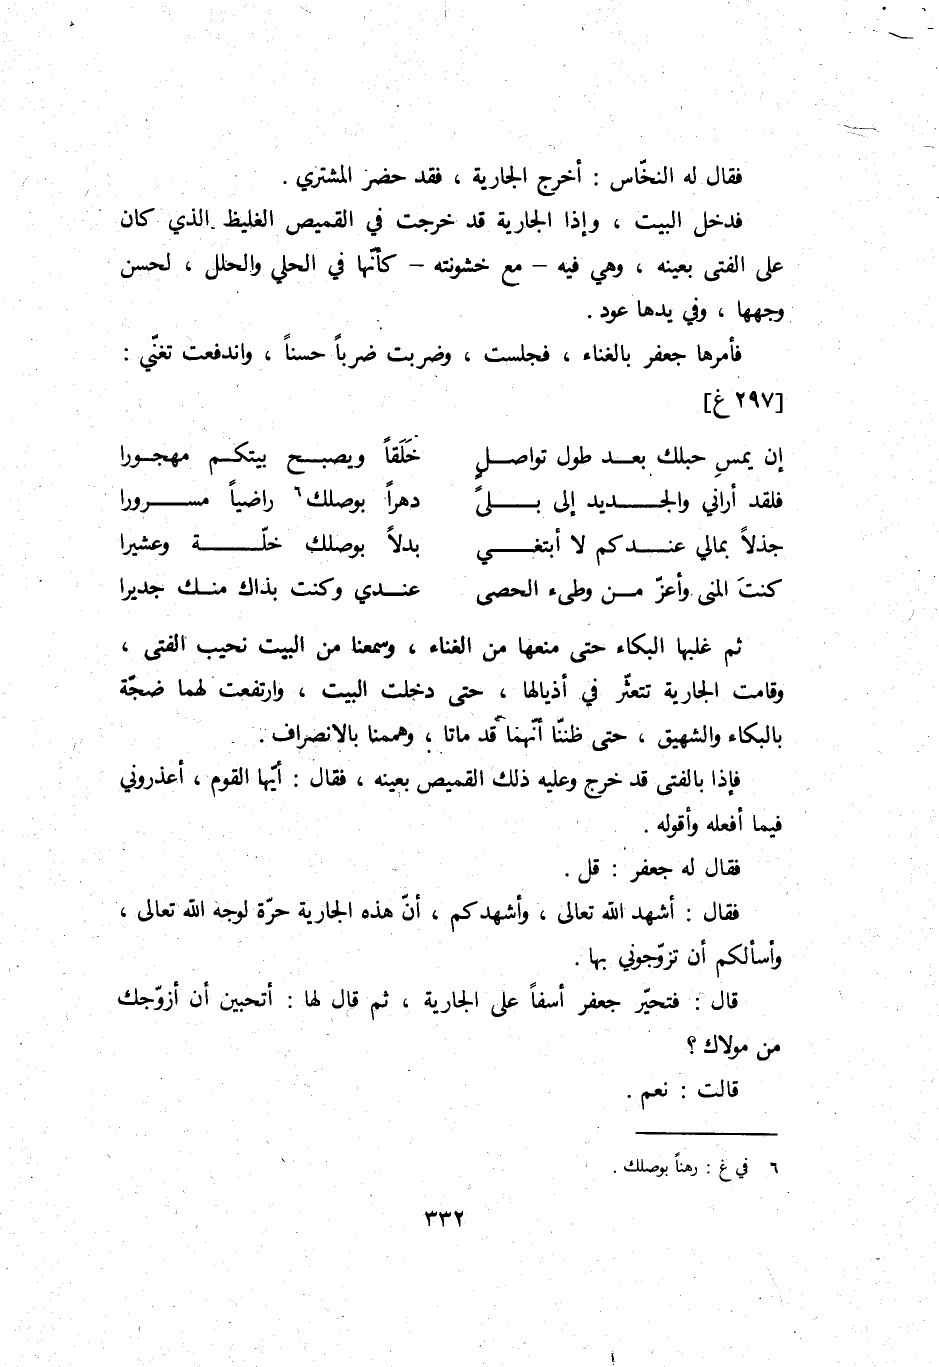 فقال له النخّاس : أخرج الجارية ، فقد حضر المشتري .
فدخل البيت ، وإذا الجارية قد خرجت في القميص الغليظ الذي كان
على الفتى بعينه ، وهي فيه – مع خشونته – كأنّها في الحلي والحلل ، لحسن
وجهها ، وفي يدها عود .
فأمرها جعفر بالغناء ، فجلست ، وضربت ضرباً حسناً ، واندفعت تغنّي :
[٢٩٧ غ]
إن يمسِ حبلك بعد طول تواصلٍ خَلَقاً ويصبح بيتكم مهجورا
فلقد أراني والجديد إلى بلىً دهراً بوصلك٦ راضياً مسرورا
جذلاً بمالي عندكم لا أبتغي بدلاً بوصلك خلّة وعشيرا
كنتَ المنى وأعزّ من وطىء الحصى عندي وكنت بذاك منك جديرا
ثم غلبها البكاء حتى منعها من الغناء ، وسمعنا من البيت نحيب الفتى ،
وقامت الجارية تتعثّر في أذيالها ، حتى دخلت البيت ، وارتفعت لهما ضجّة
بالبكاء والشهيق ، حتى ظننّا أنّهما قد ماتا ، وهممنا بالانصراف .
فإذا بالفتى قد خرج وعليه ذلك القميص بعينه ، فقال : أيّها القوم ، أعذروني
فيما أفعله وأقوله .
فقال له جعفر : قل .
فقال : أشهد الله تعالى ، وأشهدكم ، أنّ هذه الجارية حرّة لوجه الله تعالى ،
وأسألكم أن تزوّجوني بها .
قال : فتحيّر جعفر أسفاً على الجارية ، ثم قال لها : أتحبين أن أزوّجك
من مولاك ؟
قالت : نعم .
٦ في غ : رهناً بوصلك .
٣٣٢